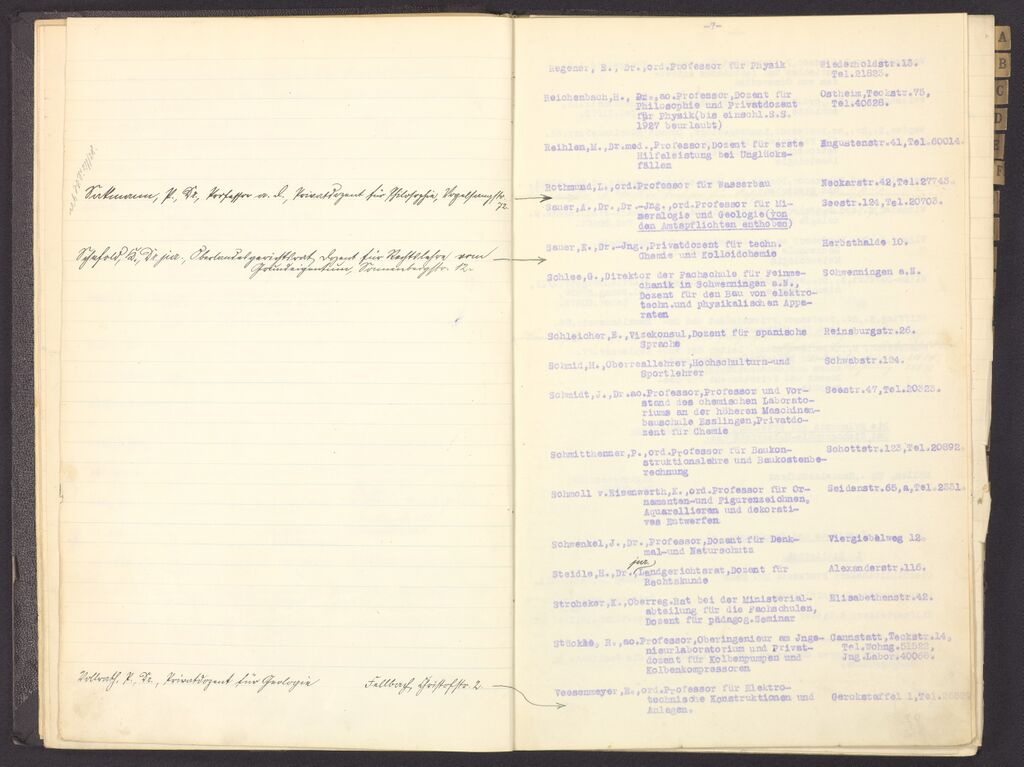 Sakmann, P., Dr., Professor a. D., Privatdozent für Philosophie, Vogelsangstr.
72.
Schefold, K., Dr. jur., Oberlandesgerichtsrat, Dozent für Rechtslehre vom
Grundeigentum, Sonnenbergstr. 12.
Vollrath, P., Dr., Privatdozent für Geologie Fellbach, Christofstr. 2
-9-
Regener, E., Dr.,ord.Professor für Physik Wiederholdstr.13.
Tel.21823.
Reichenbach,H., Dr.,ao.Professor,Dozent für Ostheim,Teckstr.75,
Philosophie und Privatdozent Tel.40628.
für Physik(bis einschl.S.S.
1927 beurlaubt)
Reihlen,M.,Dr.med.,Professor,Dozent für erste Augustenstr.41,Tel.60014.
Hilfeleistung bei Unglücks-
fällen
Rothmund,L.,ord.Professor für Wasserbau Neckarstr.42,Tel.27743.
Sauer,A.,Dr.,Dr.-Jng.,ord.Professor für Mi- Seestr.124,Tel.20703.
neralogie und Geologie(von
den Amtspflichten enthoben)
Sauer,E.,Dr.-Jng.,Privatdozent für techn. Herbsthalde 10.
Chemie und Kolloidchemie
Schlee,G.,Direktor der Fachschule für Feinme- Schwenningen a.N.
chanik in Schwenningen a.N.,
Dozent für den Bau von elektro-
techn.und physikalischen Appa-
raten
Schleicher,E.,Vizekonsul,Dozent für spanische Reinsburgstr.26.
Sprache
Schmid,H.,Oberreallehrer,Hochschulturn-und Schwabstr.124.
Sportlehrer
Schmidt,J.,Dr.ao.Professor,Professor und Vor- Seestr.47,Tel.20323.
stand des chemischen Laborato-
riums an der höheren Maschinen-
bauschule Esslingen,Privatdo-
zent für Chemie
Schmitthenner,P.,ord.Professor für Baukon- Schottstr.123,Tel.20892.
struktionslehre und Baukostenbe-
rechnung
Schmoll v.Eisenwerth,K.,ord.Professor für Or- Seidenstr.65,a,Tel.2551.
namenten-und Figurenzeichnen,
Aquarellieren und dekorati-
ves Entwerfen
Schwenkel,J.,Dr.,Professor,Dozent für Denk- Viergiebelweg 12.
mal-und Naturschutz
jur.
Steidle,H.,Dr.,Landgerichtsrat,Dozent für Alexanderstr.116.
Rechtskunde
Stroheker,K.,Oberreg.Rat bei der Ministerial- Elisabethenstr.42.
abteilung für die Fachschulen,
Dozent für pädagog.Seminar
Stückle, R.,ao.Professor,Oberingenieur am Jnge- Cannstatt,Teckstr.14,
nieurlaboratorium und Privat- Tel.Wohng.51522,
dozent für Kolbenpumpen und Jng.Labor.40066.
Kolbenkompressoren
Veesenmeyer,E.,ord.Professor für Elektro-
technische Konstruktionen und Gerokstaffel 1,Tel.
Anlagen.
A
B
C
D
E
F